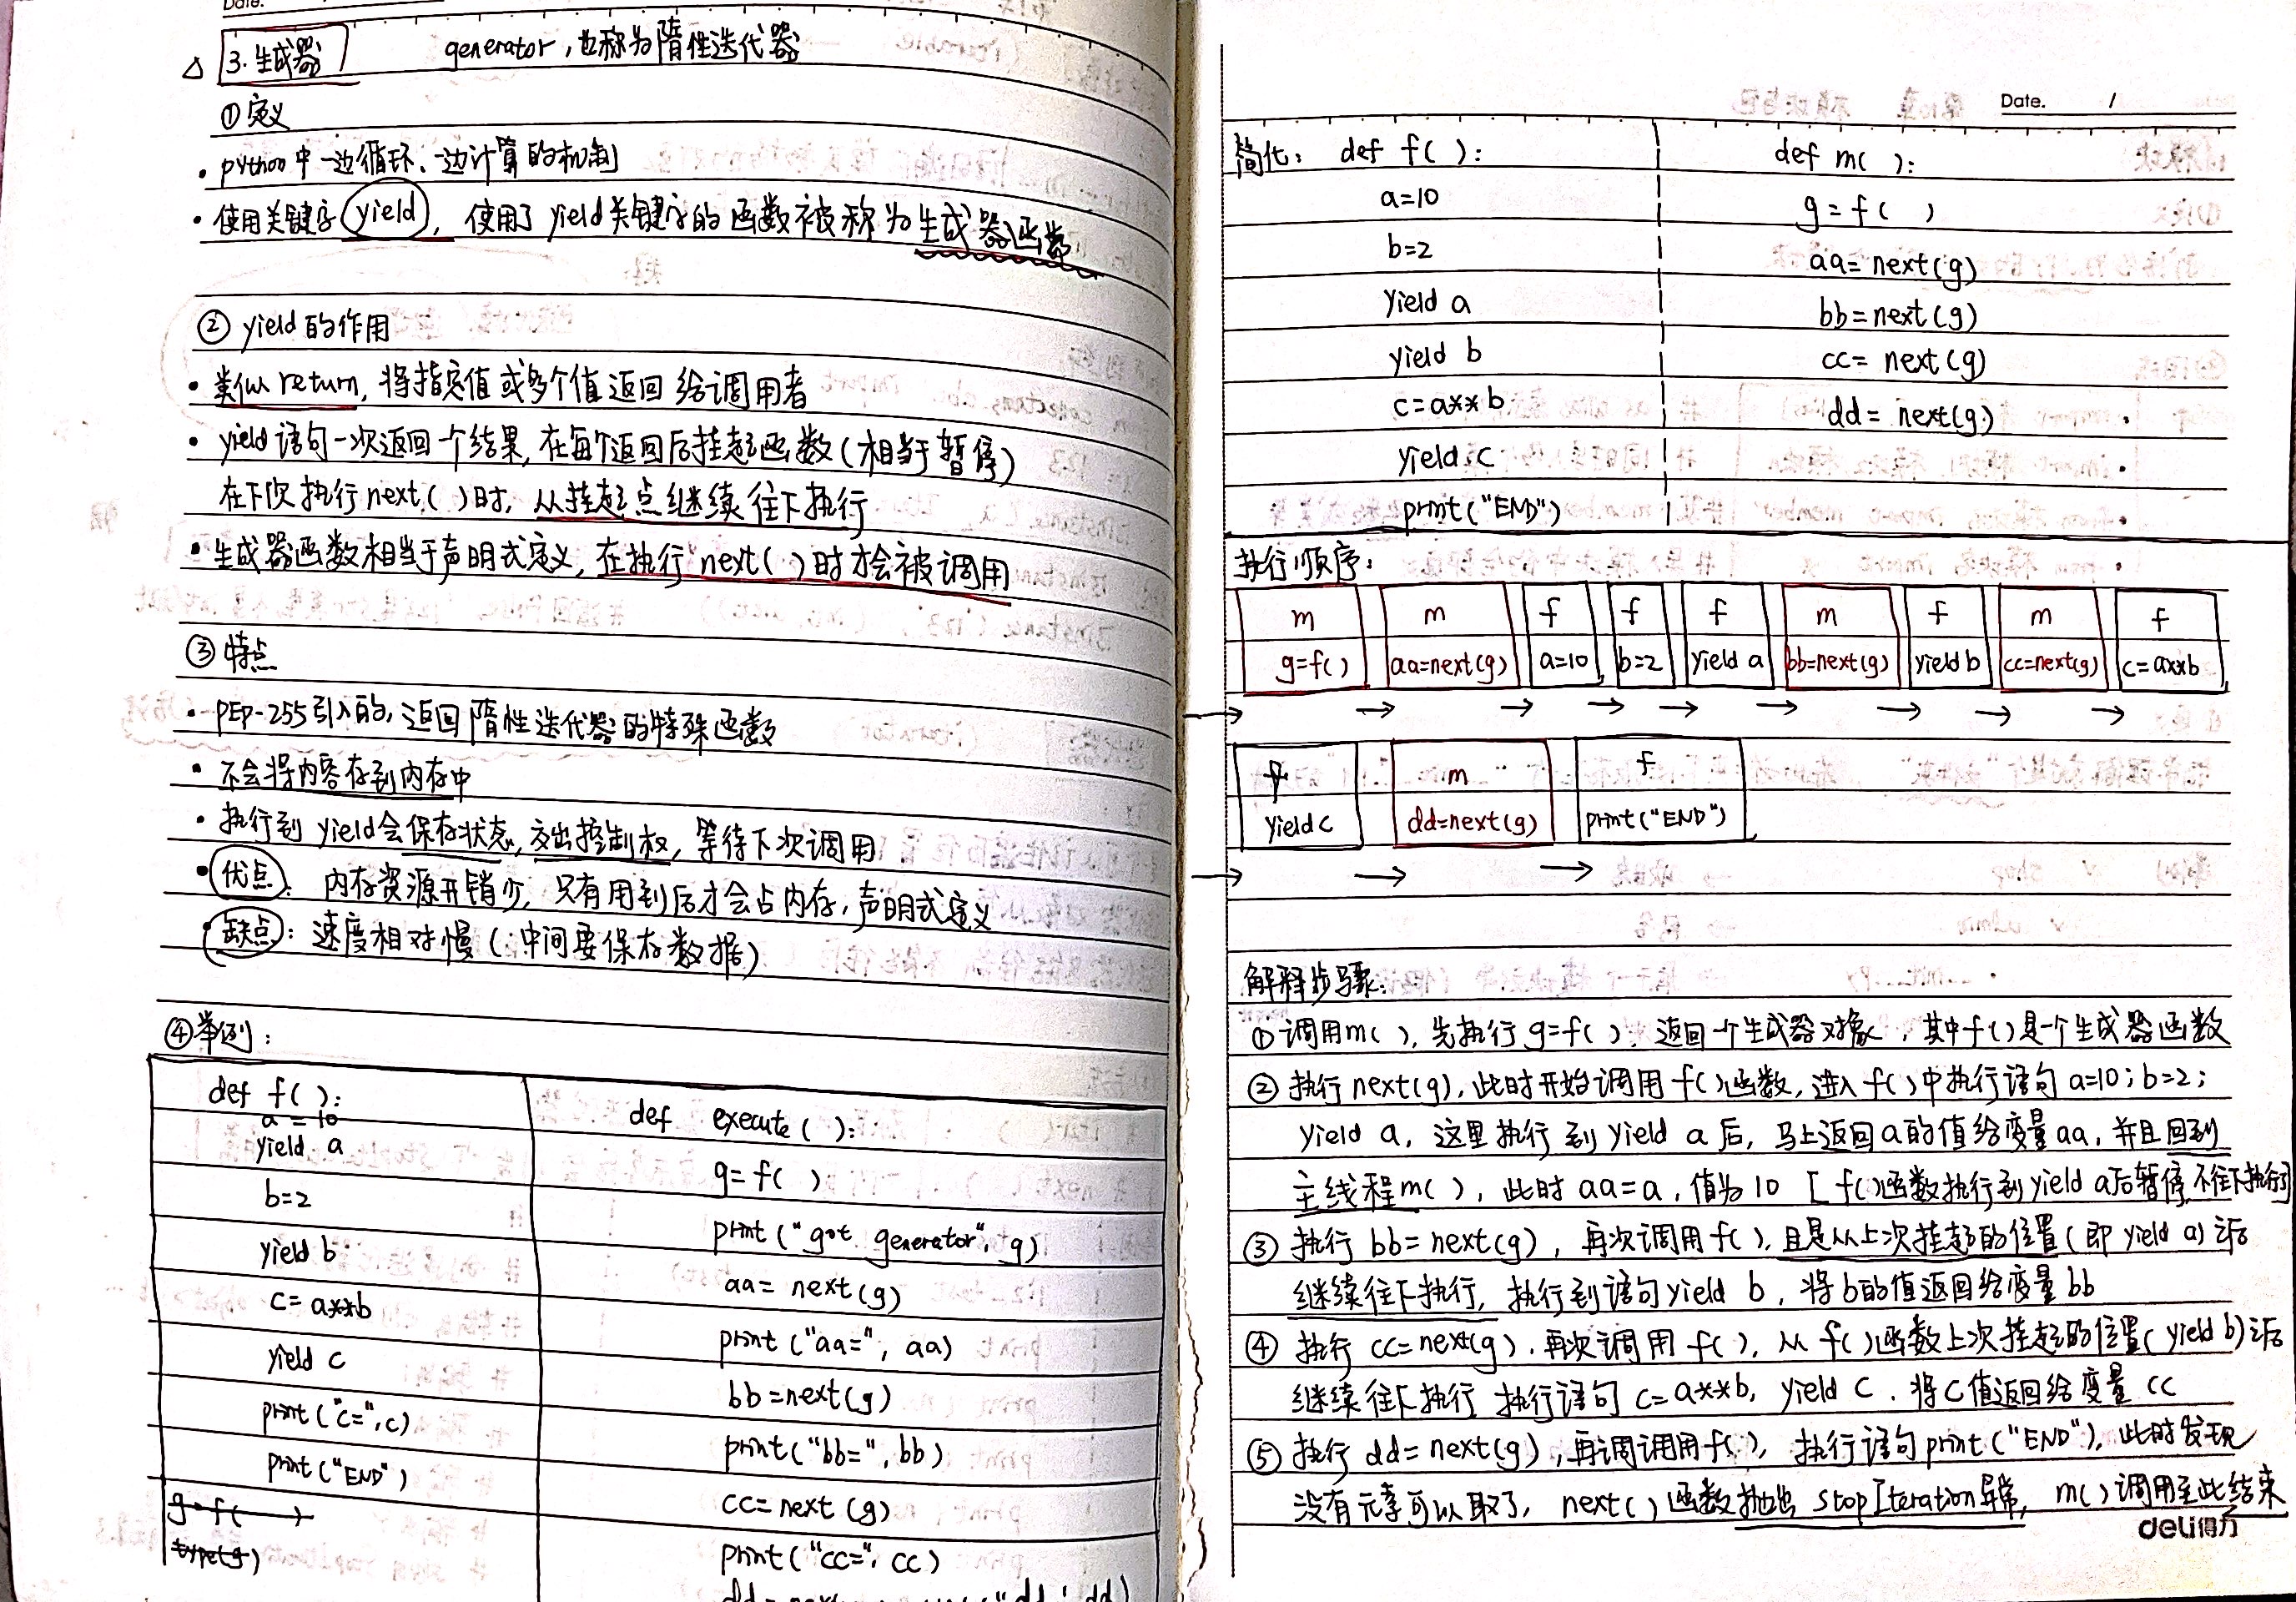 Date.
△ 3.生成器 generator，也称为隋性迭代器
①定义
· python中一边循环、一边计算的机制
· 使用关键字yield，使用了yield关键字的函数被称为生成器函数
② yield的作用
· 类似return，将指定值或多个值返回给调用者
· yield语句一次返回一个结果，在每个返回后挂起函数（相当于暂停）
在下次执行next( )时，从挂起点继续往下执行
· 生成器函数相当于声明式定义，在执行next( )时才会被调用
③ 特点
· PEP-255引入的，返回隋性迭代器的特殊函数
· 不会将内容存到内存中
· 执行到yield会保存状态，交出控制权，等待下次调用
· 优点：内存资源开销少，只有用到后才会占内存，声明式定义
· 缺点：速度相对慢（中间要保存数据）
④举例：
def f( ):
a = 10
yield a
b=2
yield b
c= a**b
yield c
print("c=",c)
print("END")
g=f( )
type(g)
def execute( ):
g= f( )
print("got generator", g)
aa= next(g)
print("aa=", aa)
bb=next(g)
print("bb=",bb)
cc=next(g)
print("cc=", cc)
Date. /
简化： def f( ):
a=10
b=2
yield a
yield b
c=a**b
yield c
print("END")
def m( ):
g=f( )
aa=next(g)
bb=next(g)
cc= next(g)
dd= next(g)
执行顺序：
m m f f f m f m f
g=f() aa=next(g) a=10 b=2 yield a bb=next(g) yield b cc=next(g) c=a**b
→ → → → → → → → →
f m f
yield c dd=next(g) print("END")
→ → →
解释步骤：
①调用m( )，先执行g=f( )，返回一个生成器对象，其中f()是一个生成器函数
② 执行next(g)，此时开始调用f()函数，进入f()中执行语句a=10；b=2；
yield a，这里执行到yield a后，马上返回a的值给变量aa，并且回到
主线程m( )，此时aa=a，值为10 [ f()函数执行到yield a后暂停，不往下执行]
③ 执行bb=next(g)，再次调用f( )，且是从上次挂起的位置（即yield a）之后
继续往下执行，执行到语句yield b，将b的值返回给变量bb
④ 执行cc=next(g)，再次调用f()，从f()函数上次挂起的位置（yield b）之后
继续往下执行 执行语句c=a**b，yield c，将c值返回给变量cc
⑤ 执行dd=next(g)，再调调用f( )，执行语句print("END")，此时发现
没有元素可以取了，next( )函数抛出stopIteration异常，m( )调用至此结束
deli得力